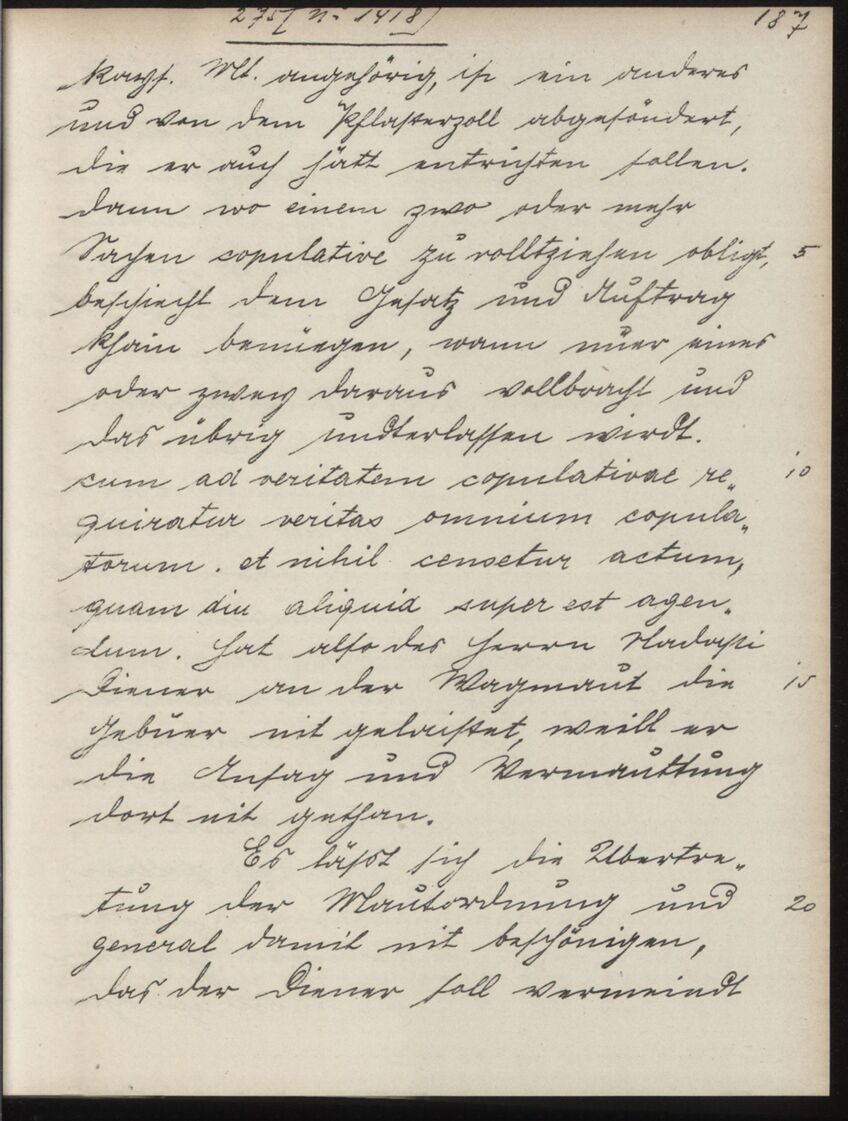 275 [N: 1418] 187
Kays. Mt. angehörig, ist ein anderes
und von dem Pflasterzoll abgesöndert,
die er auch hätt entrichten sollen.
dann wo einem zwo oder mehr
Sachen copulative zu volltziehen obligt, 5
beschiecht dem Gesatz und Auftrag
khain benüegen, wann nuer eines
oder zwey daraus vollbracht und
das übrig undterlassen wirdt.
cum ad veritatem copulativae re„ 10
quiratur veritas omnium copula„
torum. et nihil censetur actum,
quam diu aliquid super est agen„
dum. hat also des Herrn Nadasti
Diener an der Wagmaut die 15
Gebüer nit gelaistet, weill er
die Ansag und Vermauttung
dort nit gethan.
Es lässt sich die Ubertre„
tung der Mautordnung und 20
general damit nit beschönigen,
das der Diener soll vermeindt